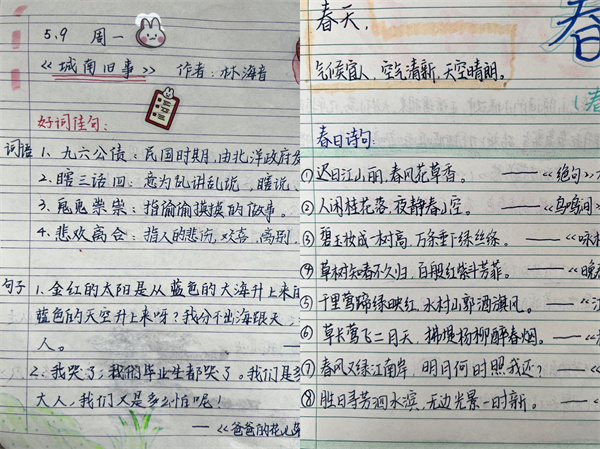 5.9 周一
《城南旧事》 作者:林海音
好词佳句:
词语 1、九六公债:民国时期,由北洋政府发
2、瞎三话四:意为乱讲乱说,瞎说、
3、鬼鬼祟祟:指偷偷摸摸的做事。
4、悲欢离合:指人的悲伤,欢喜,离别
句子 1、金红的太阳是从蓝色的大海升上来的
蓝色的天空升上来呀?我分不出海跟天,
人。
2、我哭了,我们毕业生都哭了。我们是多
大人,我们又是多么怕呢!
—《爸爸的花儿
春天,
春
气候宜人,空气清新,天空晴朗。
《春
春日诗句:
①迟日江山丽,春风花草香。——《绝句》
②人闲桂花落,夜静春山空。——《鸟鸣涧》
③碧玉妆成一树高,万条垂下绿丝绦。——《咏柳
④草树知春不久归,百般红紫斗芳菲。——《晚春
⑤千里莺啼绿映红,水村山郭酒旗风。——《江
⑥草长莺飞二月天,拂堤杨柳醉春烟。——
⑦春风又绿江南岸,明月何时照我还?——《
⑧胜日寻芳泗水滨,无边光景一时新。——《